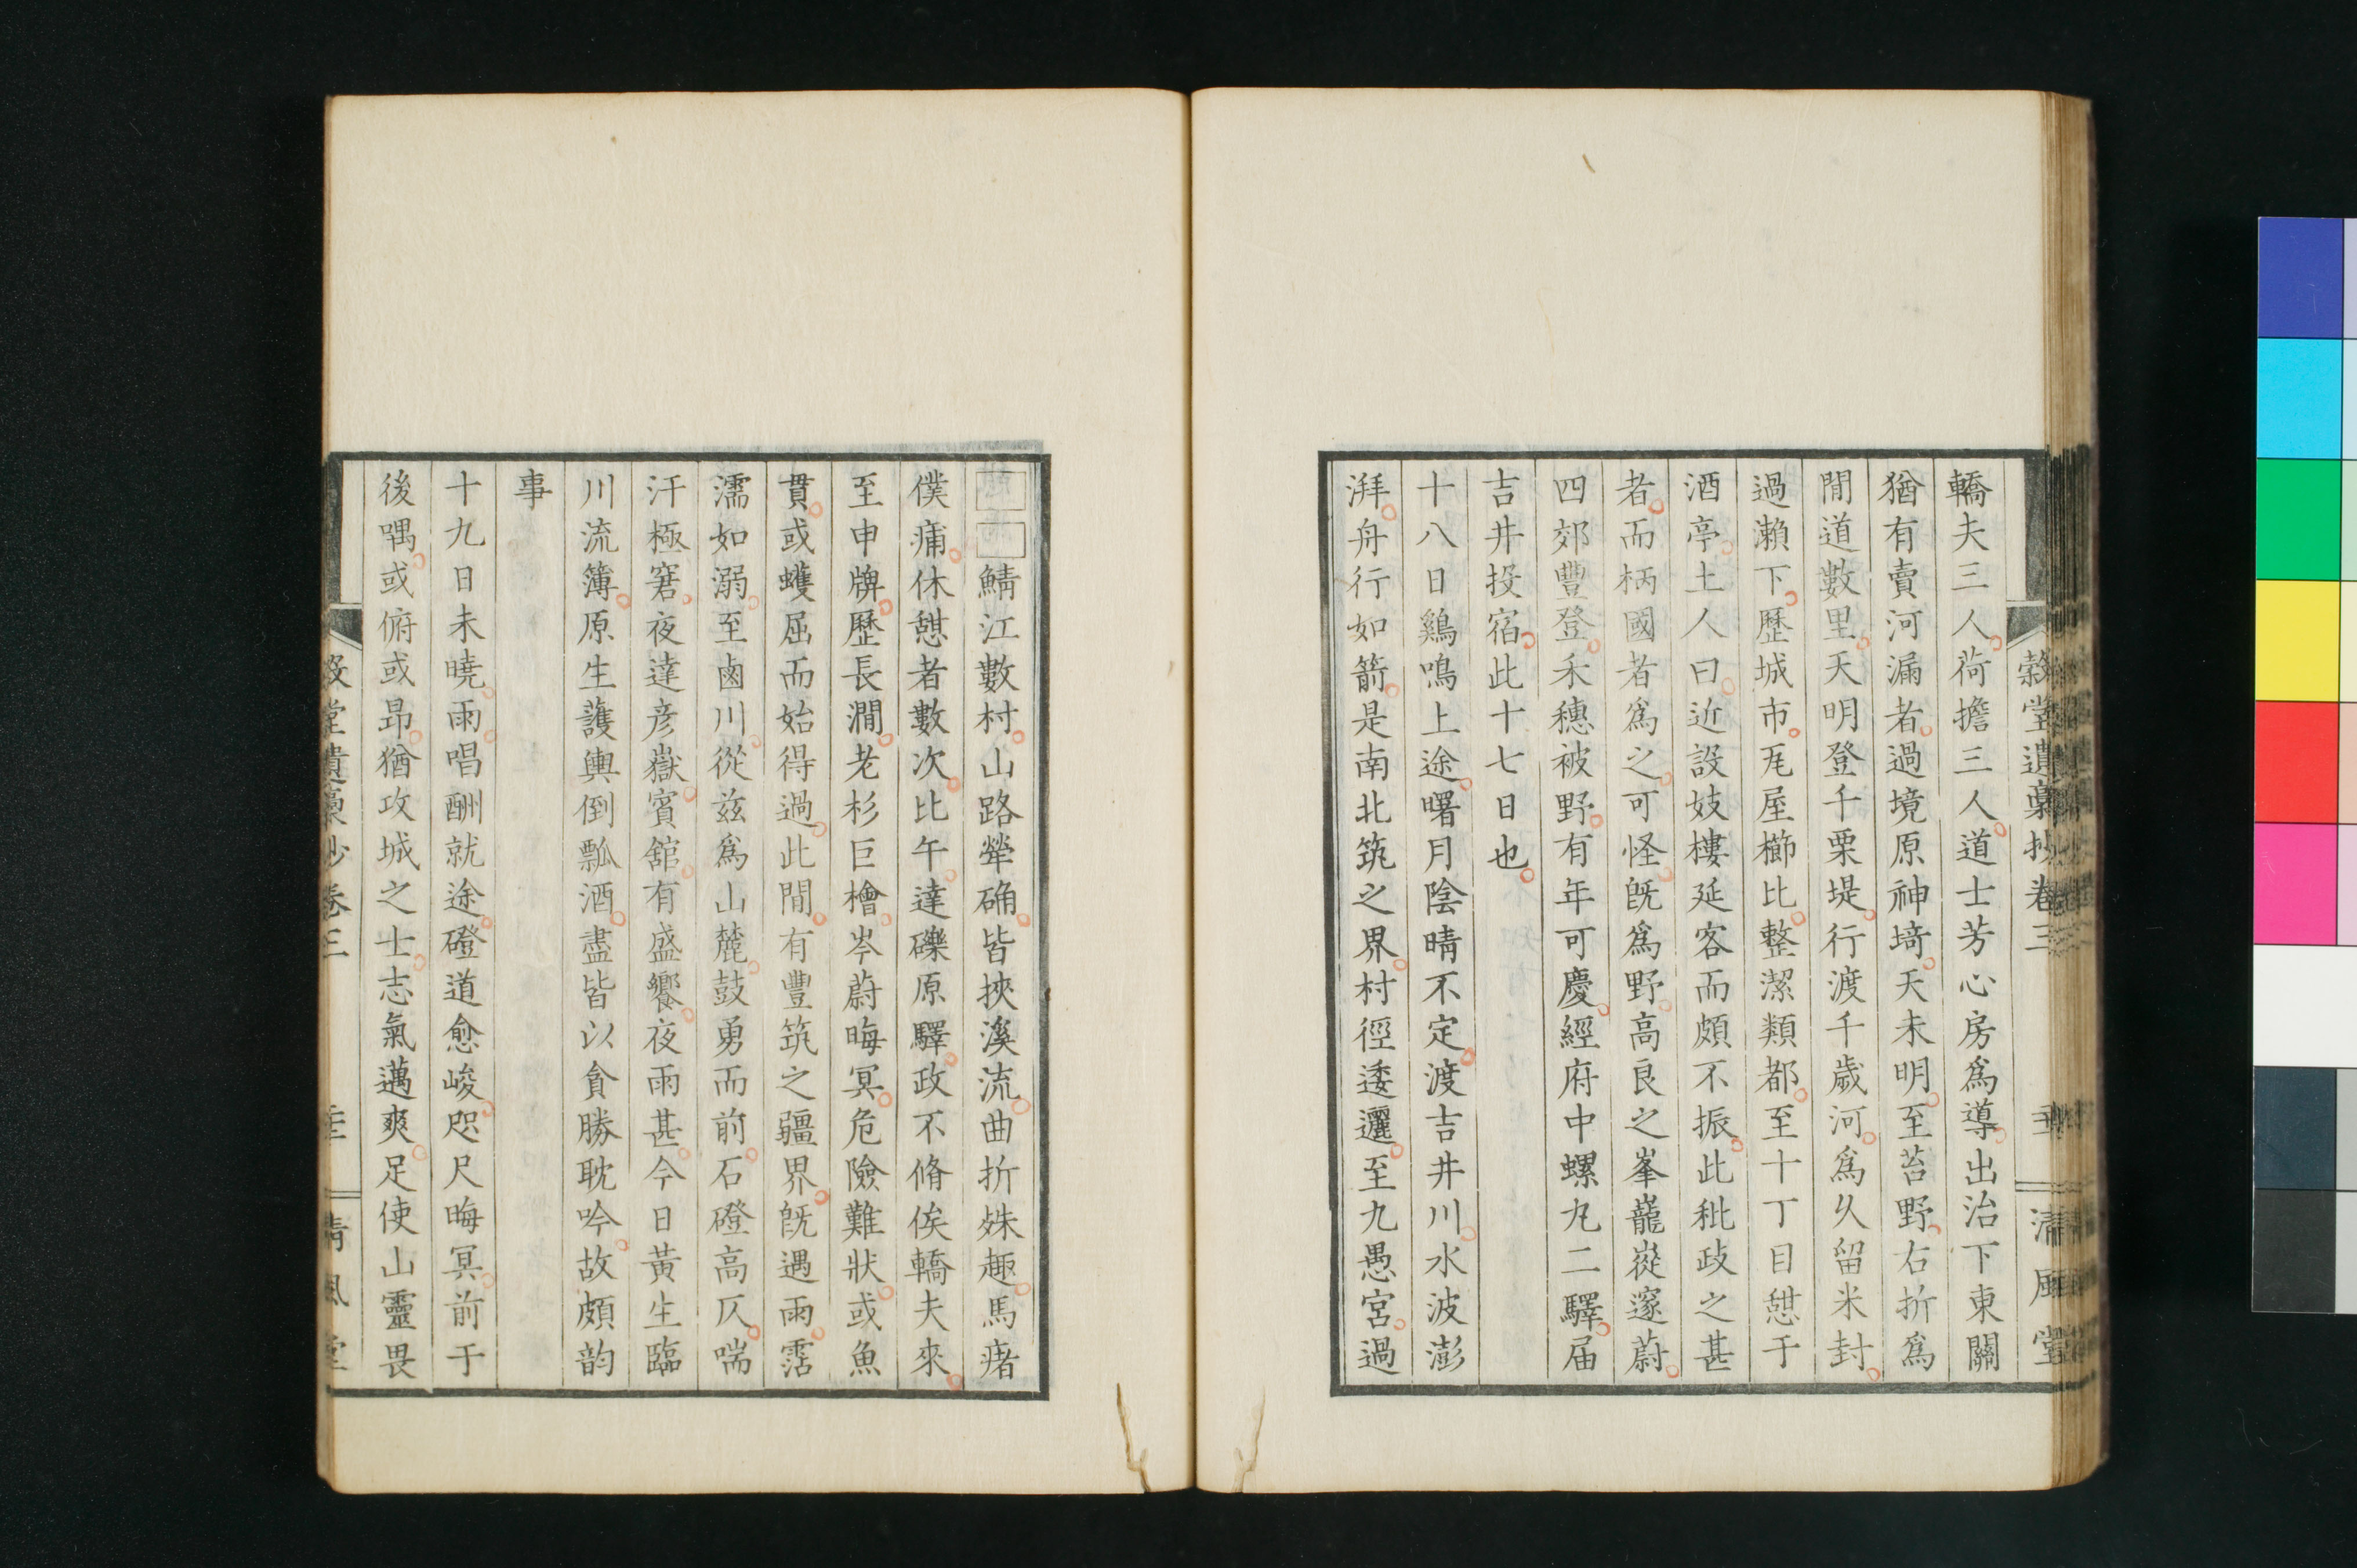 穀堂遺稾抄卷三 清風堂
轎夫三人荷擔三人道士芳心房爲導出治下東關
猶有賣河漏者過境原神埼天未明至苔野右折爲
閒道數里天明登千栗堤行渡千歳河爲久留米封
過瀨下歷城市瓦屋櫛比整潔類都至十丁目憇于
酒亭土人曰近設妓樓延客而頗不振此秕政之甚
者而柄國者爲之可怪既爲野高良之峯巃嵸邃蔚
四郊豐登禾穗被野有年可慶經府中螺丸二驛届
吉井投宿此十七日也
十八日鷄鳴上途曙月陰晴不定渡吉井川水波澎
湃舟行如箭是南北筑之界村徑逶邐至九愚宮過
鯖江數村山路犖确皆挾溪流曲折姝趣馬瘏
僕痡休憇者數次比午達礫原驛政不脩俟轎夫來
至申牌歷長澗老杉巨檜岑蔚晦冥危險難狀或魚
貫或蠖屈而始得過此閒有豐筑之疆界既遇雨霑
濡如溺至鹵川從茲爲山麓鼓勇而前石磴高仄喘
汗極窘夜達彦嶽賓舘有盛饗夜雨甚今日黃生臨
川流簿原生護輿倒瓢酒盡皆以貪勝耽吟故頗韵
事
十九日未曉雨唱酬就途磴道愈峻咫尺晦冥前于
後喁或俯或昂猶攻城之士志氣邁爽足使山靈畏
堂遺稾抄卷三 清風堂